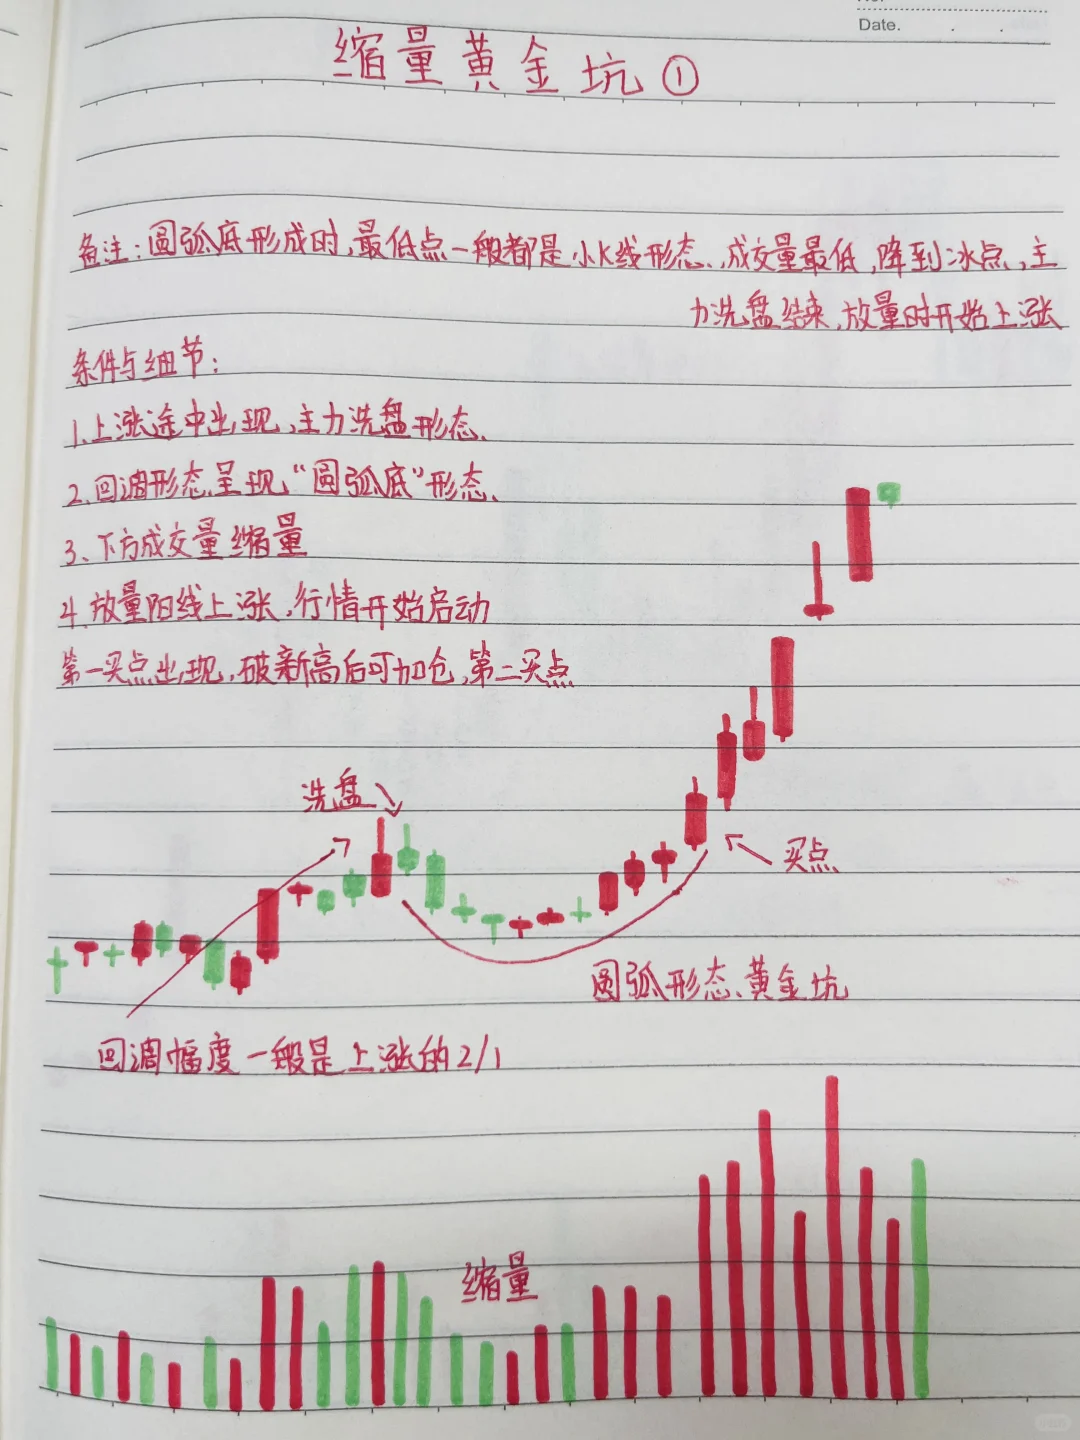 Date.
缩量黄金坑①
备注:圆弧底形成时,最低点一般都是小K线形态、成交量最低,降到冰点,主
力洗盘结束,放量时开始上涨
条件与细节:
1、上涨途中出现、主力洗盘形态、
2、回调形态呈现“圆弧底”形态、
3、下方成交量缩量
4、放量阳线上涨,行情开始启动
第一买点出现,破新高后可加仓,第二买点
洗盘
买点
圆弧形态、黄金坑
回调幅度一般是上涨的2/1
缩量